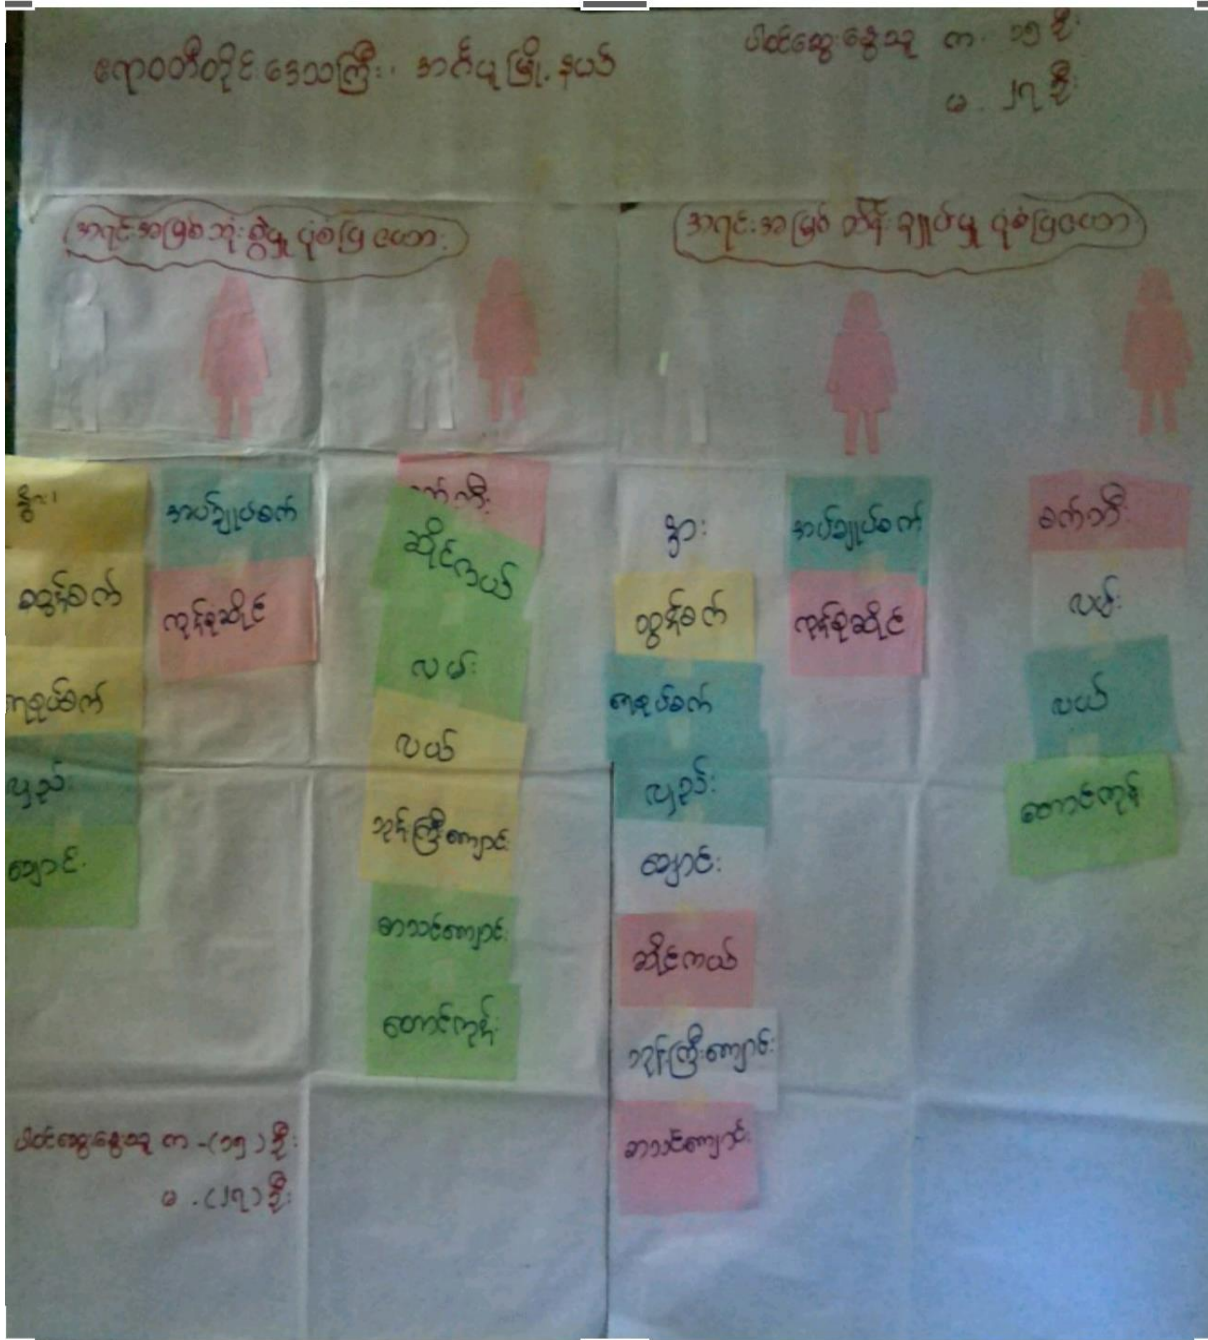 ဧရာဝတီတိုင်းဒေသကြီး၊ အင်္ဂပူမြို့နယ်
ပါဝင်ဆွေးနွေးသူ က - ၁၅ ဦး
မ - ၂၇ ဦး
အရင်းအမြစ်သုံးစွဲမှု ပုံစံပြဇယား
အရင်းအမြစ်ထိန်းချုပ်မှု ပုံစံပြဇယား
အပ်ချုပ်စက်
ကုန်စုံဆိုင်
ဆိုင်ကယ်
လမ်း
လယ်
ဘုန်းကြီးကျောင်း
စာသင်ကျောင်း
တောင်ကုန်း
နွား
ထွန်စက်
လှည်း
ချောင်း
ဆိုင်ကယ်
ဘုန်းကြီးကျောင်း
စာသင်ကျောင်း
အပ်ချုပ်စက်
ကုန်စုံဆိုင်
စက်ဘီး
လမ်း
လယ်
တောင်ကုန်း
ပါဝင်ဆွေးနွေးသူ က - (၁၅) ဦး
မ - (၂၇) ဦး